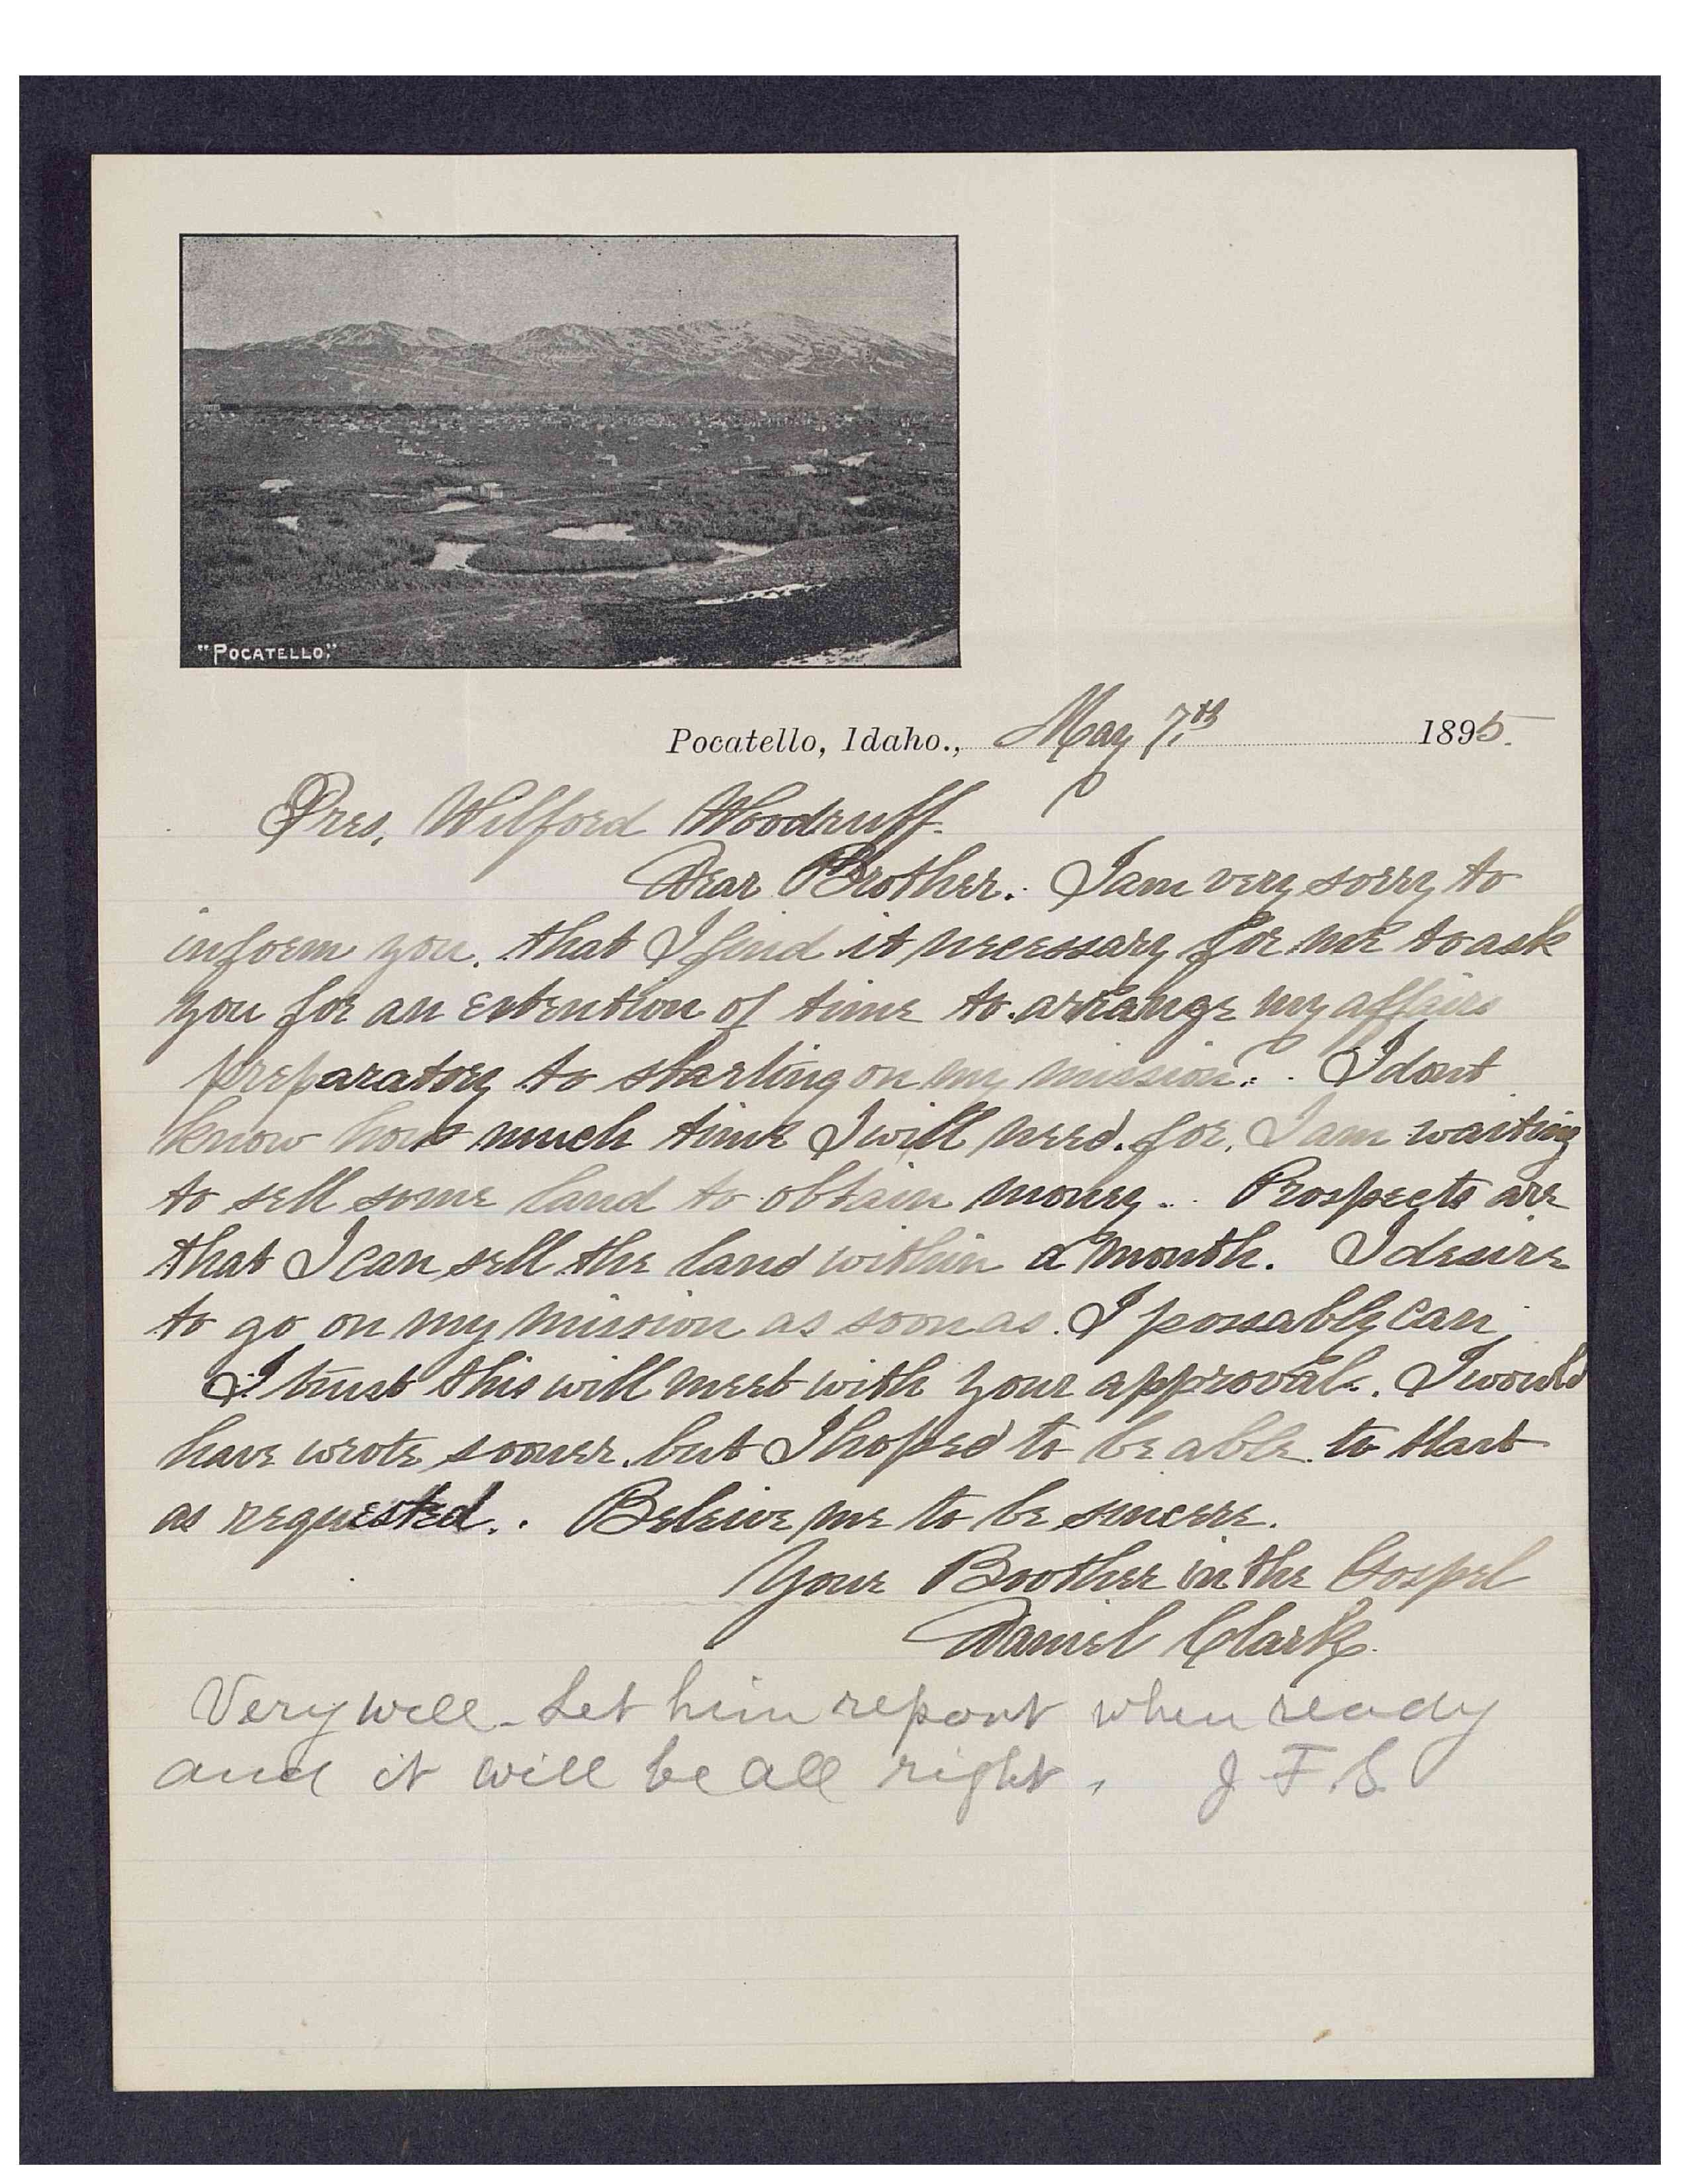 "POCATELLO."
Pocatello, Idaho., May 7th. 1895.
Pres. Wilford Woodruff.
Dear Brother. I am very sorry to
inform you. that I find it necessary for me to ask
you for an extention of time to arrange my affairs
preparatory to starting on my mission. I dont
know how much time I will need. for, I am waiting
to sell some land to obtain money. Prospects are
that I can sell the land within a month. I desire
to go on my mission as soon as I possably can,
I trust this will meet with your approval. I would
have wrote sooner. but I hoped to be able to start
as requested. Beleive me to be sincere.
Your Broother in the Gospel
Daniel Clark.
Very well - Let him report when ready
and it will be all right, J F S